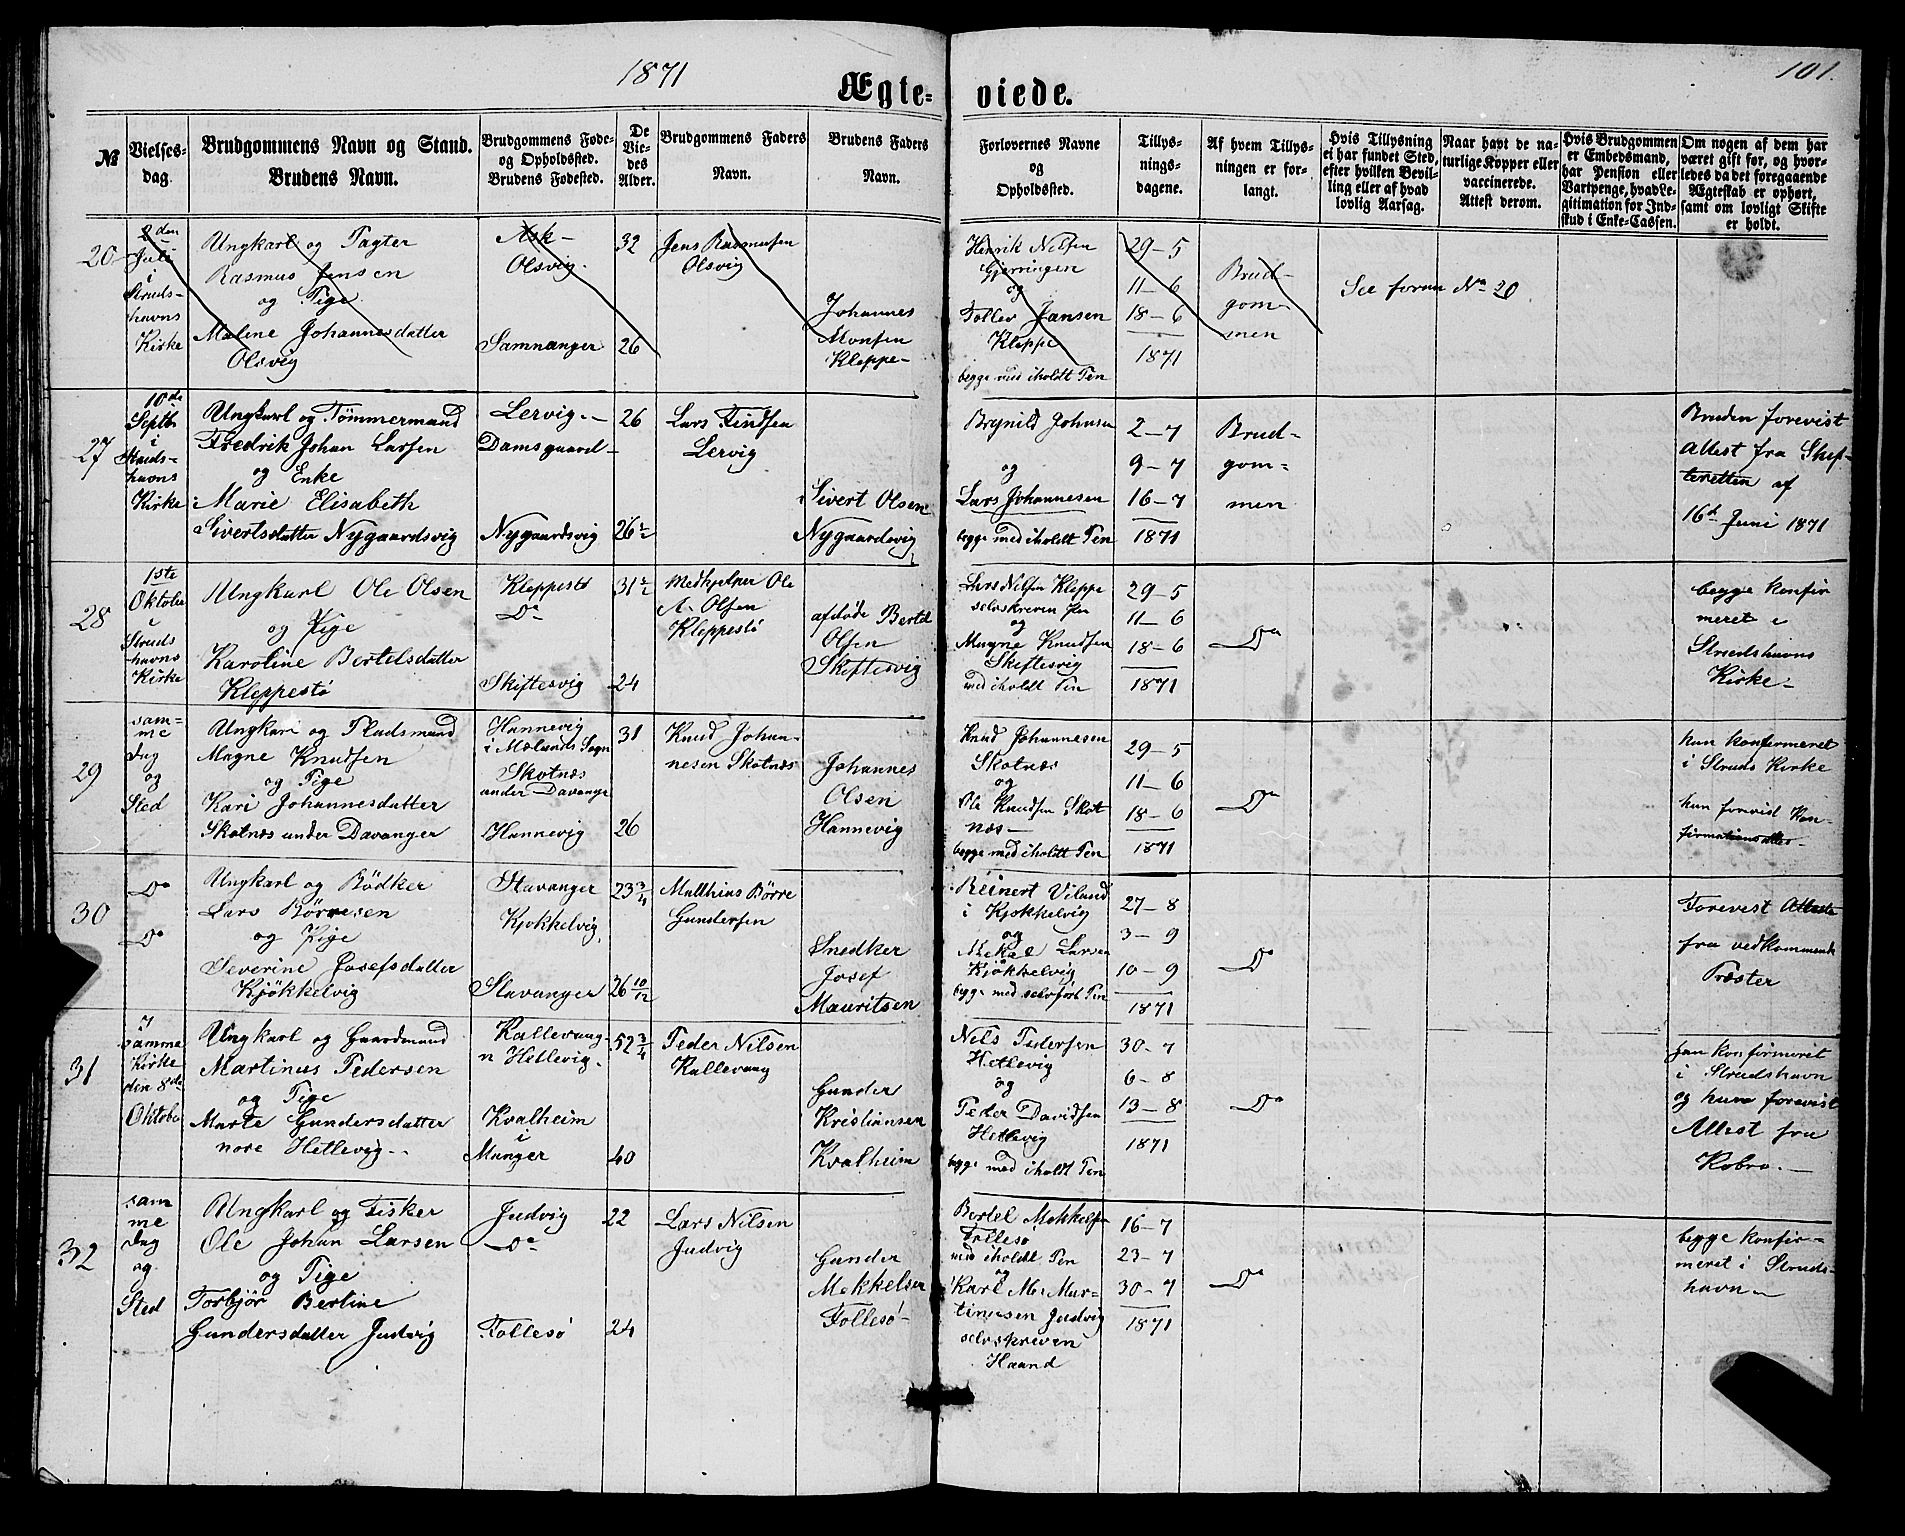 1871
Ægte-
viede.
101.
№
Vielses-
dag.
Brudgommens Navn og Stand.
Brudens Navn.
Brudgommens Føde-
og Opholdssted.
Brudens Fødested.
De
Vie-
des
Alder.
Brudgommens Faders
Navn.
Brudens Faders
Navn.
Forlovernes Navne
og
Opholdssted.
Tillys-
nings-
dagene.
Af hvem Tillys-
ningen er for-
langt.
Hvis Tillysning
ei har fundet Sted,
efter hvilken Bevil-
ling eller af hvad
lovlig Aarsag.
Naar havt de na-
turlige Kopper eller
vaccinerede.
Attest derom.
Hvis Brudgommen
er Embedsmand,
har Pension eller
Vartpenge, hvad Le-
gitimation for Ind-
skud i Enke-Cassen.
Om nogen af dem har
været gift før, og hvor-
ledes da det foregaaende
Ægteskab er ophørt,
samt om lovligt Skifte
er holdt.
20
2den
Juli
i
Struds-
havns
Kirke
Ungkarl og Pagter
Rasmus Jensen
og Pige
Malene Johannesdatter
Olsvig
Ask-
Olsvig.
Samnanger
32
26
Jens Rasmussen
Olsvig
Johannes
Monsen
Kleppe-
Henrik Nilsen
Gjerningen
og
Tollev Jansen
Kleppe
begge med iholdt Pen
29-5
11-6
18-6
1871
Brud-
gom-
men
See foran No 20
27
10de
Septb.
i
Struds-
havns
Kirke
Ungkarl og Tömmermand
Fredrik Johan Larsen
og Enke
Marie Elisabeth
Sivertsdatter Nygaardsvig
Lervig-
Damsgaard-
Nygaardsvig
26
26½
Lars Findsen
Lervig
Sivert Olsen
Nygaardsvig
Brynild Johnsen
og
Lars Johannesen
begge med iholdt Pen
2-7
9-7
16-7
1871
Brud-
gom-
men
Bruden forevist
Attest fra Skif-
teretten af
16d Juni 1871
28
1ste
Oktober
i
Struds
havns
Kirke
Ungkarl Ole Olsen
og Pige
Karoline Bertelsdatter
Kleppestö
Kleppestö
Do
Skiftesvig
31½
24
Medhjelper Ole
A. Olsen
Kleppestö
afdöde Bertel
Olsen
Skiftesvig
Lars Nilsen Kleppe
selvskreven Pen
og
Magne Knudsen
Skiftesvig
med iholdt Pen
29-5
11-6
18-6
1871
Do
begge konfir
meret i
Strudshavns
Kirke-
29
sam-
me
Dag
og
Sted
Ungkarl og Pladsmand
Magne Knudsen
og Pige
Kari Johannesdatter
Skotnæs under Davanger
Hannevig
i Mælands Sogn
Skotnæs
under Davanger
Hannevig
31
26
Knud Johan-
nesen Skotnæs
Johannes
Olsen
Hannevig
Knud Johannesen
Skotnæs
og
Ole Knudsen Skot
næs-
begge med iholdt Pen
29-5
11-6
18-6
1871
Do
han konfirmeret
i Struds Kirke
hun forevist Kon-
firmationsattes-
30
Do
Do
Ungkarl og Bödker
Lars Börresen
og Pige
Severine Josefsdatter
Kjökkelvig
Stavanger
Kjökkelvig,
Stavanger
23¾
26 10/12
Matthias Börre
Gundersen
Snedker
Josef
Mauritsen
Reinert Viland
i Kjökkelvig
og
Mekal Larsen
Kjökkelvig
begge med selvfört Pen
27-8
3-9
10-9
1871
Do
Forevist Atteste
fra vedkommende
Præster
31
I
samme
Kirke
den 8de
Oktober
Ungkarl og Gaardmand
Martinus Pedersen
og Pige
Marte Gundersdatter
nore Hetlevig-
Kallevaag-
n Hetlevig.
Kvalheim
i
Manger
52¾
40
Peder Nilsen
Kallevaag
Gunder
Kristiansen
Kvalheim
Nels Pedersen
Hetlevig
og
Peder Davidsen
Hetlevig
begge med iholdt Pen
30-7
6-8
13-8
1871
Do
han konfirmeret
i Strudshavn
og hun forevist
Attest fra
Kobro.-
32
sam
me
Dag
og
Sted
Ungkarl og Fisker
Ole Johan Larsen
og Pige
Torbjör Bertine
Gundersdatter Judvig
Judvig
Do
Follesö
22
24
Lars Nilsen
Judvig
Gunder
Mekkelsen
Follesö-
Bertel Mekkelsen
Follesö
med iholdt Pen
og
Karl M. Mar-
tinusen Judvig
selvskreven
Haand
16-7
23-7
30-7
1871
Do
begge konfir-
meret i Struds-
havn-